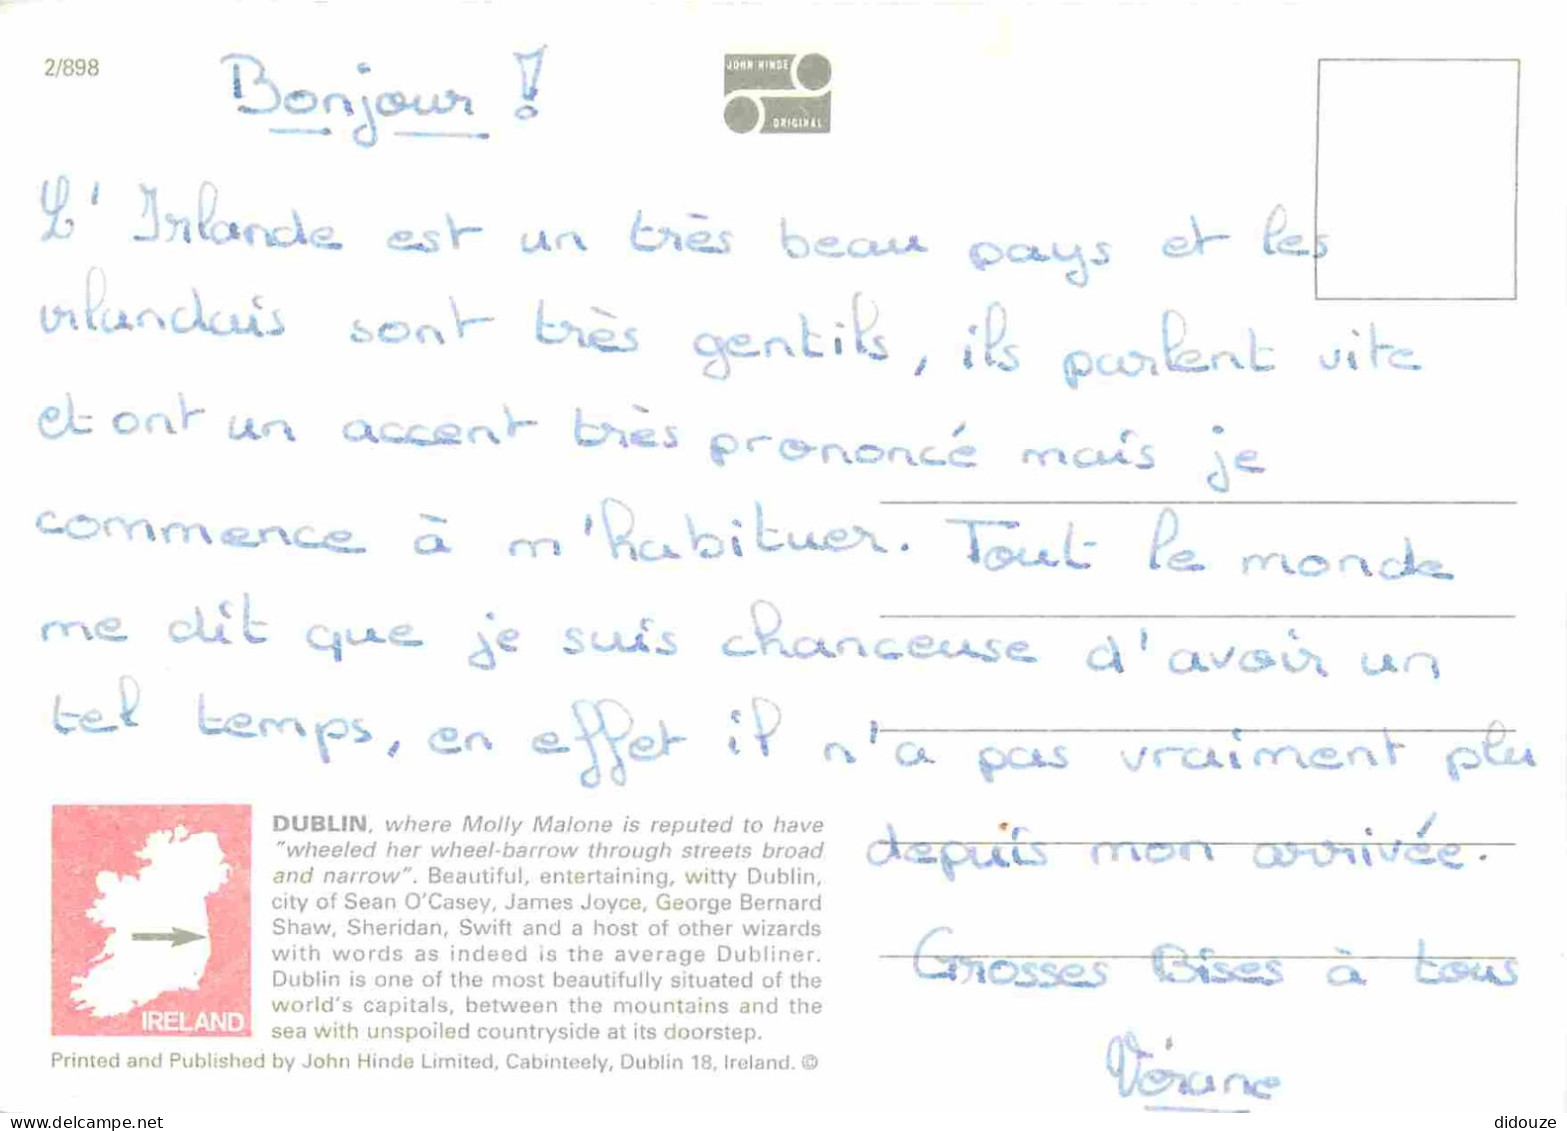 2/898
JOHN HINDE
ORIGINAL
Bonjour !
L'Irlande est un très beau pays et les
irlandais sont très gentils, ils parlent vite
et ont un accent très prononcé mais je
commence à m'habituer. Tout le monde
me dit que je suis chanceuse d'avoir un
tel temps, en effet il n'a pas vraiment plu
depuis mon arrivée.
Grosses Bises à tous
Vérane
IRELAND
DUBLIN, where Molly Malone is reputed to have
"wheeled her wheel-barrow through streets broad
and narrow". Beautiful, entertaining, witty Dublin,
city of Sean O'Casey, James Joyce, George Bernard
Shaw, Sheridan, Swift and a host of other wizards
with words as indeed is the average Dubliner.
Dublin is one of the most beautifully situated of the
world's capitals, between the mountains and the
sea with unspoiled countryside at its doorstep.
Printed and Published by John Hinde Limited, Cabinteely, Dublin 18, Ireland. ©
delcampe.net
didouze